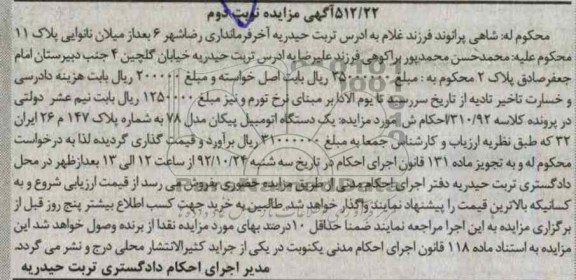 ۵۱۲/۲۲آگهی مزایده نوبت دوم
محکوم له: شاهی پرانوند فرزند غلام به ادرس تربت حیدریه آخرفرمانداری رضاشهر ۶ بعداز میلان نانوایی پلاک ۱۱
محکوم علیه: محمدحسن محمدپور براکوهی فرزند علیرضا به ادرس تربت حیدریه خیابان گلچین ۴ جنب دبیرستان امام
جعفرصادق پلاک ۲ محکوم به : مبلغ ۲۵۰۰۰۰۰۰ ریال بابت اصل خواسته و مبلغ ۲۰۰۰۰۰ ریال بابت هزینه دادرسی
و خسارت تاخیر تادیه از تاریخ سررسید تا یوم الاذ بر مبنای نرخ تورم و نیز مبلغ ۱۲۵۰۰۰۰ ریال بابت نیم عشر دولتی
در پرونده کلاسه ۳۱۰/۹۲/احکام ش مورد مزایده: یک دستگاه اتومبیل پیکان مدل ۷۸ به شماره پلاک ۱۴۷ م ۲۶ ایران
۳۲ که طبق نظریه ارزیاب و کارشناس جمعا به مبلغ ۳۱۰۰۰۰۰۰ ریال برآورد و قیمت گذاری گردیده لذا به درخواست
محکوم له و به تجویز ماده ۱۳۱ قانون اجرای احکام در تاریخ سه شنبه ۹۲/۱۰/۲۴ از ساعت ۱۲ الی ۱۳ بعدازظهر در محل
دادگستری تربت حیدریه دفتر اجرای احکام مدنی از طریق مزایده حضوری بفروش می رسد از قیمت ارزیابی شروع و به
کسانیکه بالاترین قیمت را پیشنهاد نمایند واگذار خواهد شد. طالبین به خرید جهت کسب اطلاع بیشتر پنج روز قبل از
برگزاری مزایده به این اجرا مراجعه نمایند ضمنا حداقل ۱۰درصد بهای مورد مزایده نقدا از برنده وصول خواهد شد این
مزایده به استناد ماده ۱۱۸ قانون اجرای احکام مدنی یکنوبت در یکی از جراید کثیرالانتشار محلی درج و نشر می گردد.
مدیر اجرای احکام دادگستری تربت حیدریه